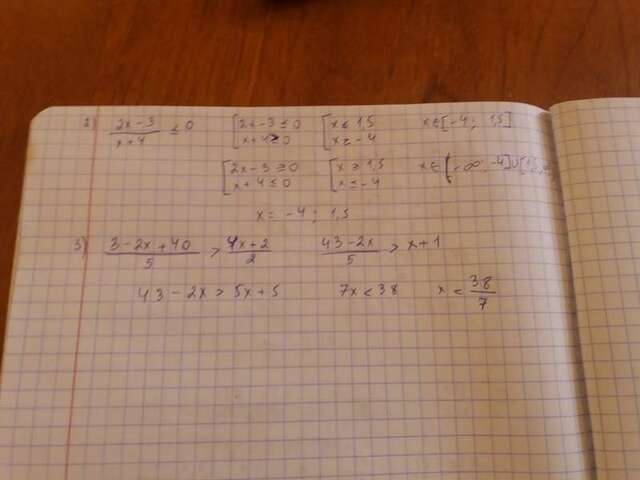 2) (2x-3)/(x+4) ≤ 0 [2x-3 ≤ 0 [x ≤ 1,5 x ∈ [-4; 1,5]
[x+4 ≥ 0 [x ≥ -4
[2x-3 ≥ 0 [x ≥ 1,5 x ∈ (-∞; -4] ∪ [1,5
[x+4 ≤ 0 [x ≤ -4
x = -4; 1,5
3) (3-2x+40)/5 > (4x+2)/2 (43-2x)/5 > x+1
43-2x > 5x+5 7x < 38 x < 38/7